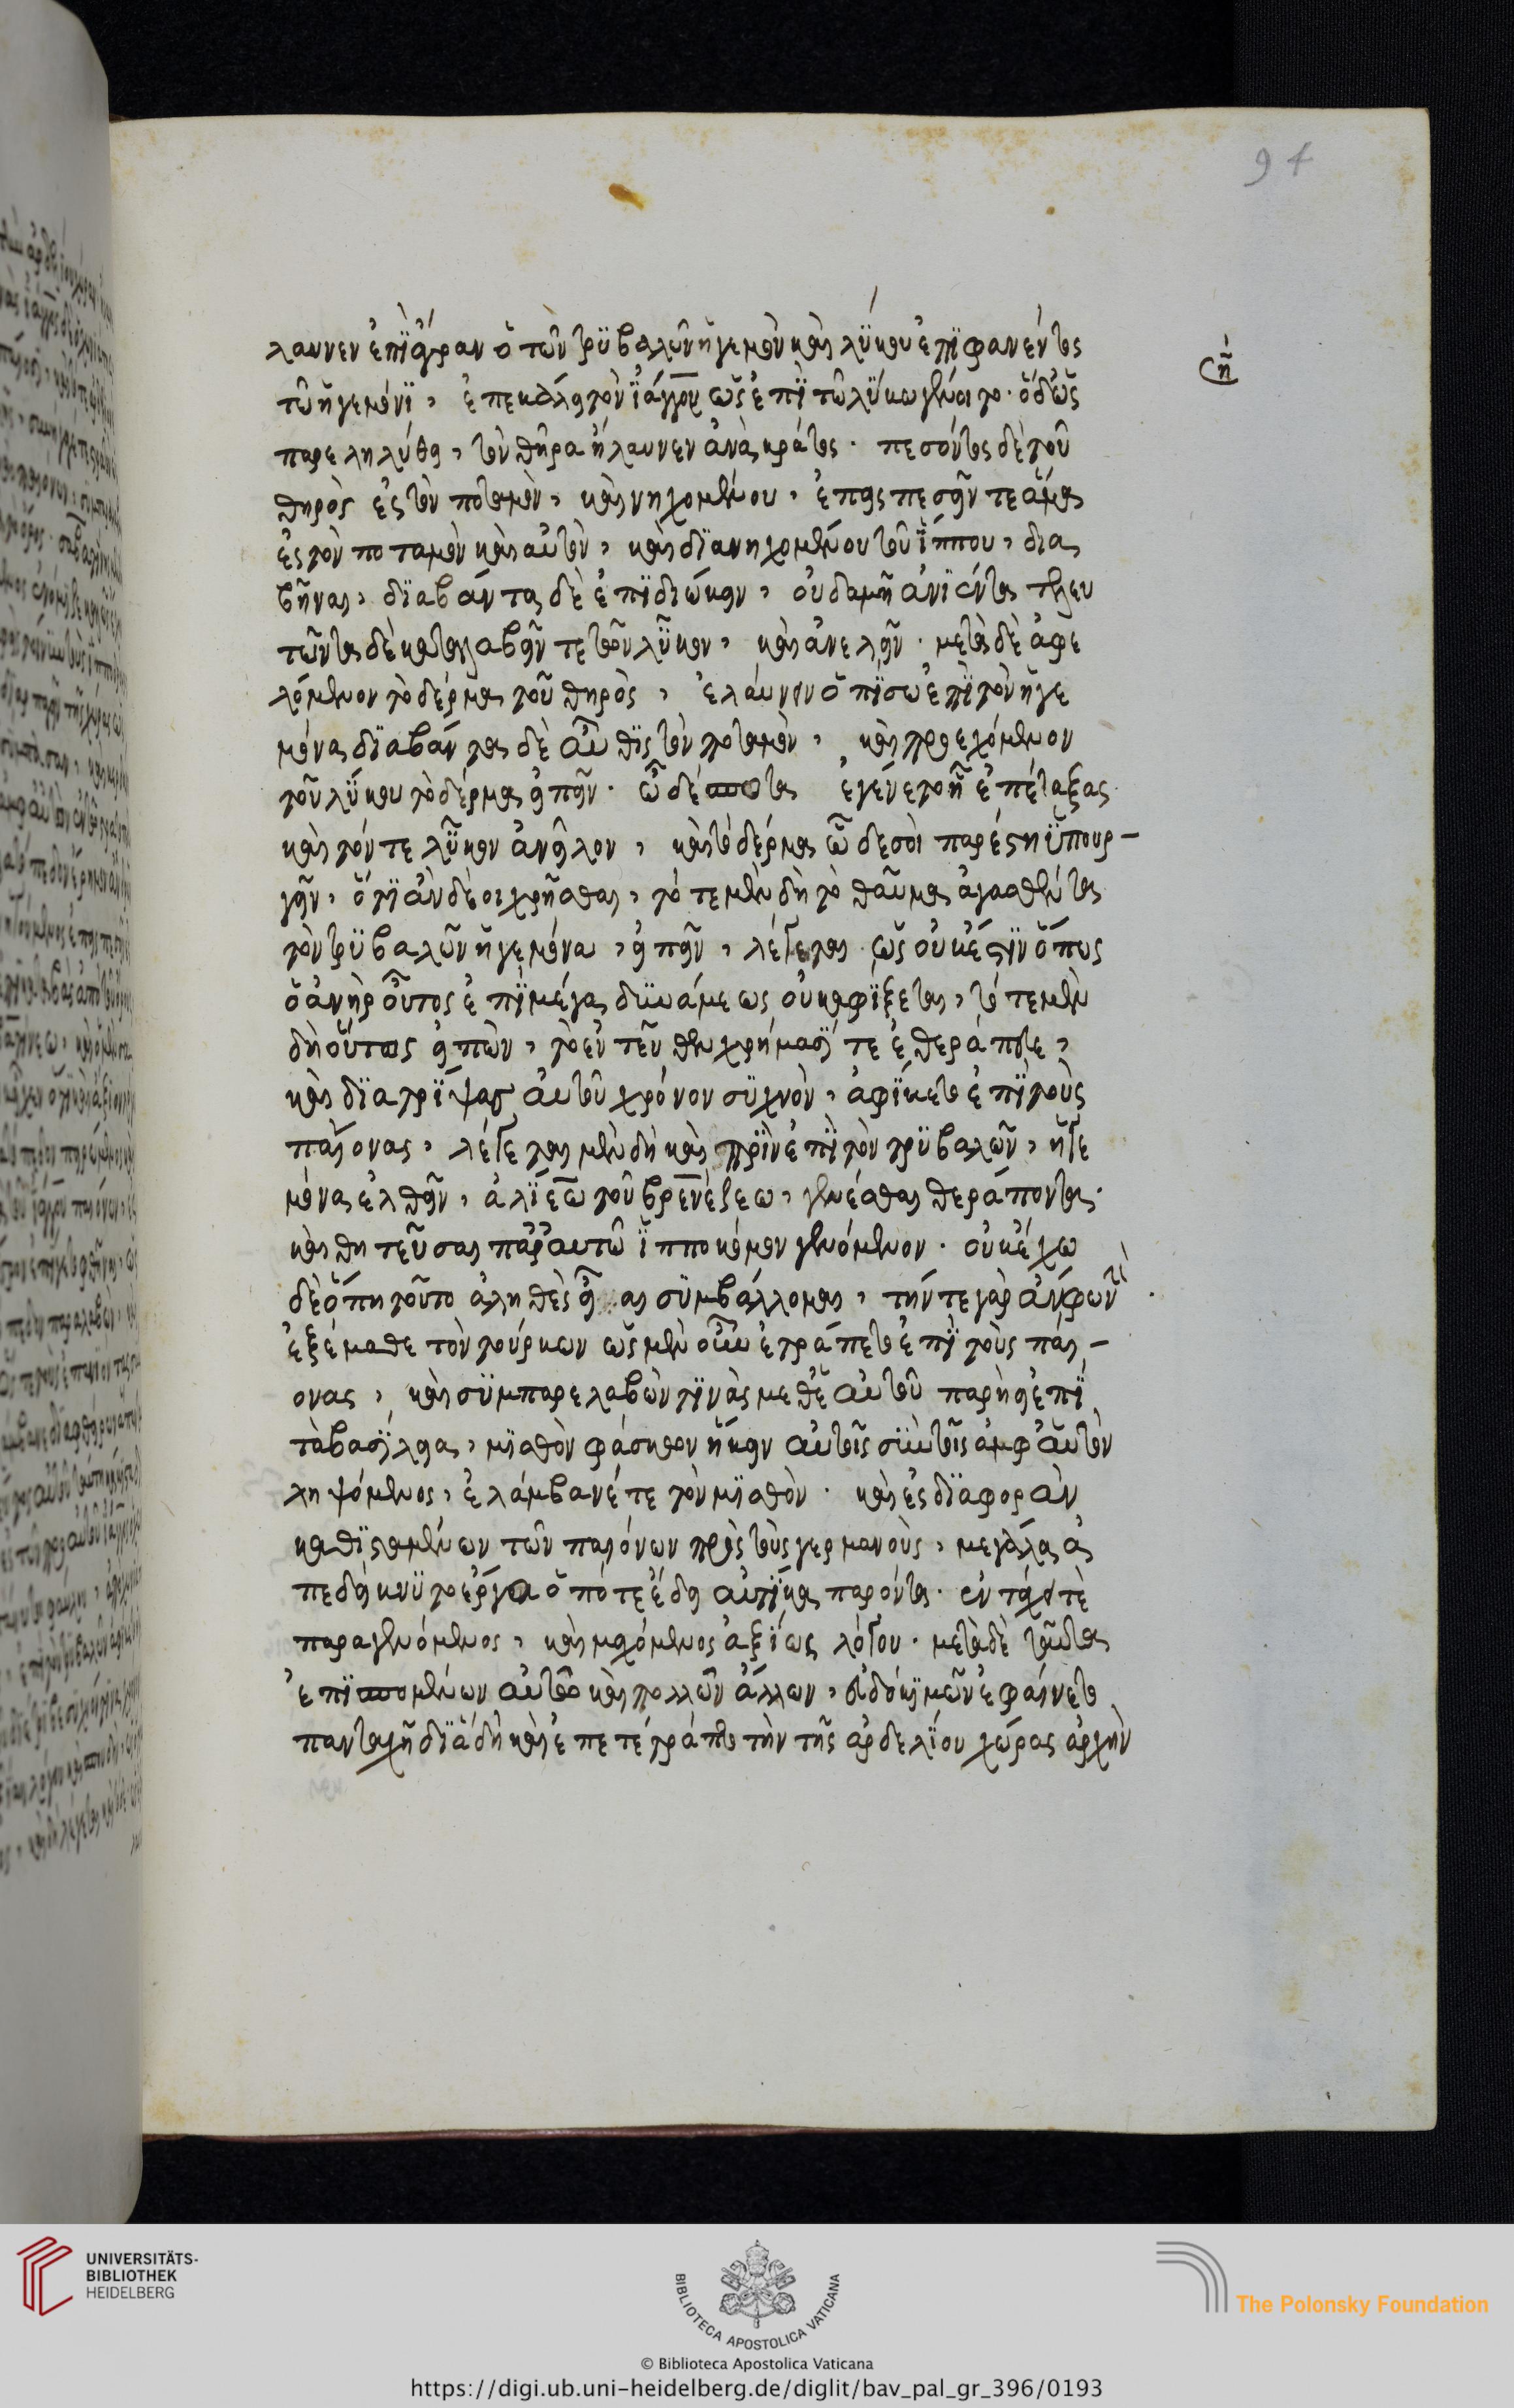 94
λαυνεν ἐπὶ ἄγραν ὁ τῶν τριβαλῶν ἡγεμὼν καὶ λύκου ἐπιφανέντος
τῶ ἡγεμόνι, ἐπεκαλεῖτο τὸν ἰάγγον ὡς ἐπὶ τῶ λύκω γένοιτο. ὁ δ' ὡς
παρεληλύθει, τὸν θῆρα ἤλαυνεν ἀνὰ κράτος. πεσόντος δὲ τοῦ
θηρὸς ἐς τὸν ποταμὸν, καὶ νηχομένου, ἐπεισπεσεῖν τε ἅμα
ἐς τὸν ποταμὸν καὶ αὐτὸν, καὶ διανηχομένου τοῦ ἵππου, δια
βῆναι, διαβάντα δὲ ἐπιδιώκειν, οὐδαμῆ ἀνιέντα τελευ
τῶντα δὲ καταλαβεῖν τε τὸν λύκον, καὶ ἀνελεῖν. μετὰ δὲ ἀφε
λόμενον τὸ δέρμα τοῦ θηρὸς, ἐλαύνειν ὀπίσω ἐπὶ τὸν ἡγε
μόνα διαβάντα δὲ αὖθις τὸν ποταμὸν, καὶ προεχόμενον
τοῦ λύκου τὸ δέρμα εἰπεῖν. ὦ δέσποτα ἐγένετο ἧ ἐπέταξας
καὶ τόν τε λύκον ἀνεῖλον, καὶ τὸ δέρμα ὧδε σοὶ πάρεστιν ὑπουρ-
γεῖν, ὅ τι ἂν δέοι χρῆσθαι, τό τε μὲν δὴ τὸ θαῦμα ἀγασθέντα
τὸν τριβαλῶν ἡγεμόνα, εἰπεῖν, λέγεται. ὡς οὐκ ἔστιν ὅπως
ὁ ἀνὴρ οὗτος ἐπὶ μέγα δυνάμεως οὐκ ἀφίξεται, τό τε μὲν
δὴ οὕτως εἰπὼν, τὸ ἐντεῦθεν χρήμασί τε ἐθεράπευε,
καὶ διατρίψας αὐτοῦ χρόνον συχνὸν, ἀφίκετο ἐπὶ τοὺς
παίονας, λέγεται μὲν δὴ καὶ πρὶν ἐπὶ τὸν τριβαλῶν, ἡγε
μόνα ἐλθεῖν, ἀλίεω τοῦ βρενέζεω, γενέσθαι θεράποντα.
καὶ θητεῦσαι παρ' αυτῶ ἱπποκόμον γενόμενον. οὐκ ἔχω
δὲ ὅπη τοῦτο ἀληθὲς συμβάλλομαι, τήν τε γὰρ
ἐξέμαθε τὸν τούρκων ὡς μὲν οὖν ἐτράπετο ἐπὶ τοὺς παί-
ονας, καὶ συμπαραλαβὼν τινὰς μεθ' ἑαυτοῦ παρήει ἐπὶ
τὰ βασίλεια, μισθὸν φάσκων ἥκειν αὐτοῖς σὺν τοῖς ἀμφ' αὑτὸν
ληψόμενος, ἐλάμβανέ τε τὸν μισθὸν. καὶ ἐς διαφορὰν
καθισταμένων τῶν παιόνων πρὸς τοὺς γερμανοὺς, μεγάλα ἀ
πεδείκνυτο ἔργα ὁπότε ἔδει αὐτίκα παρόντα. ἐν τάχει τὲ
παραγενόμενος, καὶ μαχόμενος ἀξίως λόγου. μετὰ δὲ ταῦτα
ἐπισπομένων αὐτῶ καὶ πολλῶν ἄλλων, εὐδοκιμῶν ἐφαίνετο
πανταχῆ διὰ δὴ καὶ ἐπετέτραπτο τὴν τῆς ἀρδελίου χώρας ἀρχὴν
UNIVERSITÄTS-
BIBLIOTHEK
HEIDELBERG
BIBLIOTECA APOSTOLICA VATICANA
The Polonsky Foundation
© Biblioteca Apostolica Vaticana
https://digi.ub.uni-heidelberg.de/diglit/bav_pal_gr_396/0193